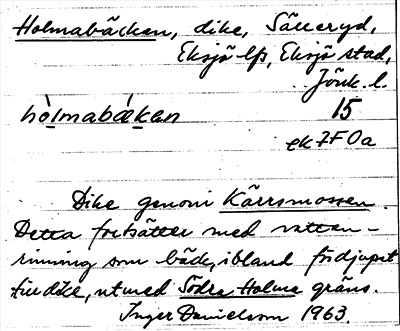 Holmabäcken, dike, Sälleryd,
Eksjö lfs, Eksjö stad,
Jönk. l.
hòlmabäken 15
ek 7F 0a
Dike genom Kärrsmossen.
Detta fortsätter med vatten-
rinning som bäck, ibland fördjupat
till dike, ut med Södra Holme gräns.
Inger Danielsson 1963.